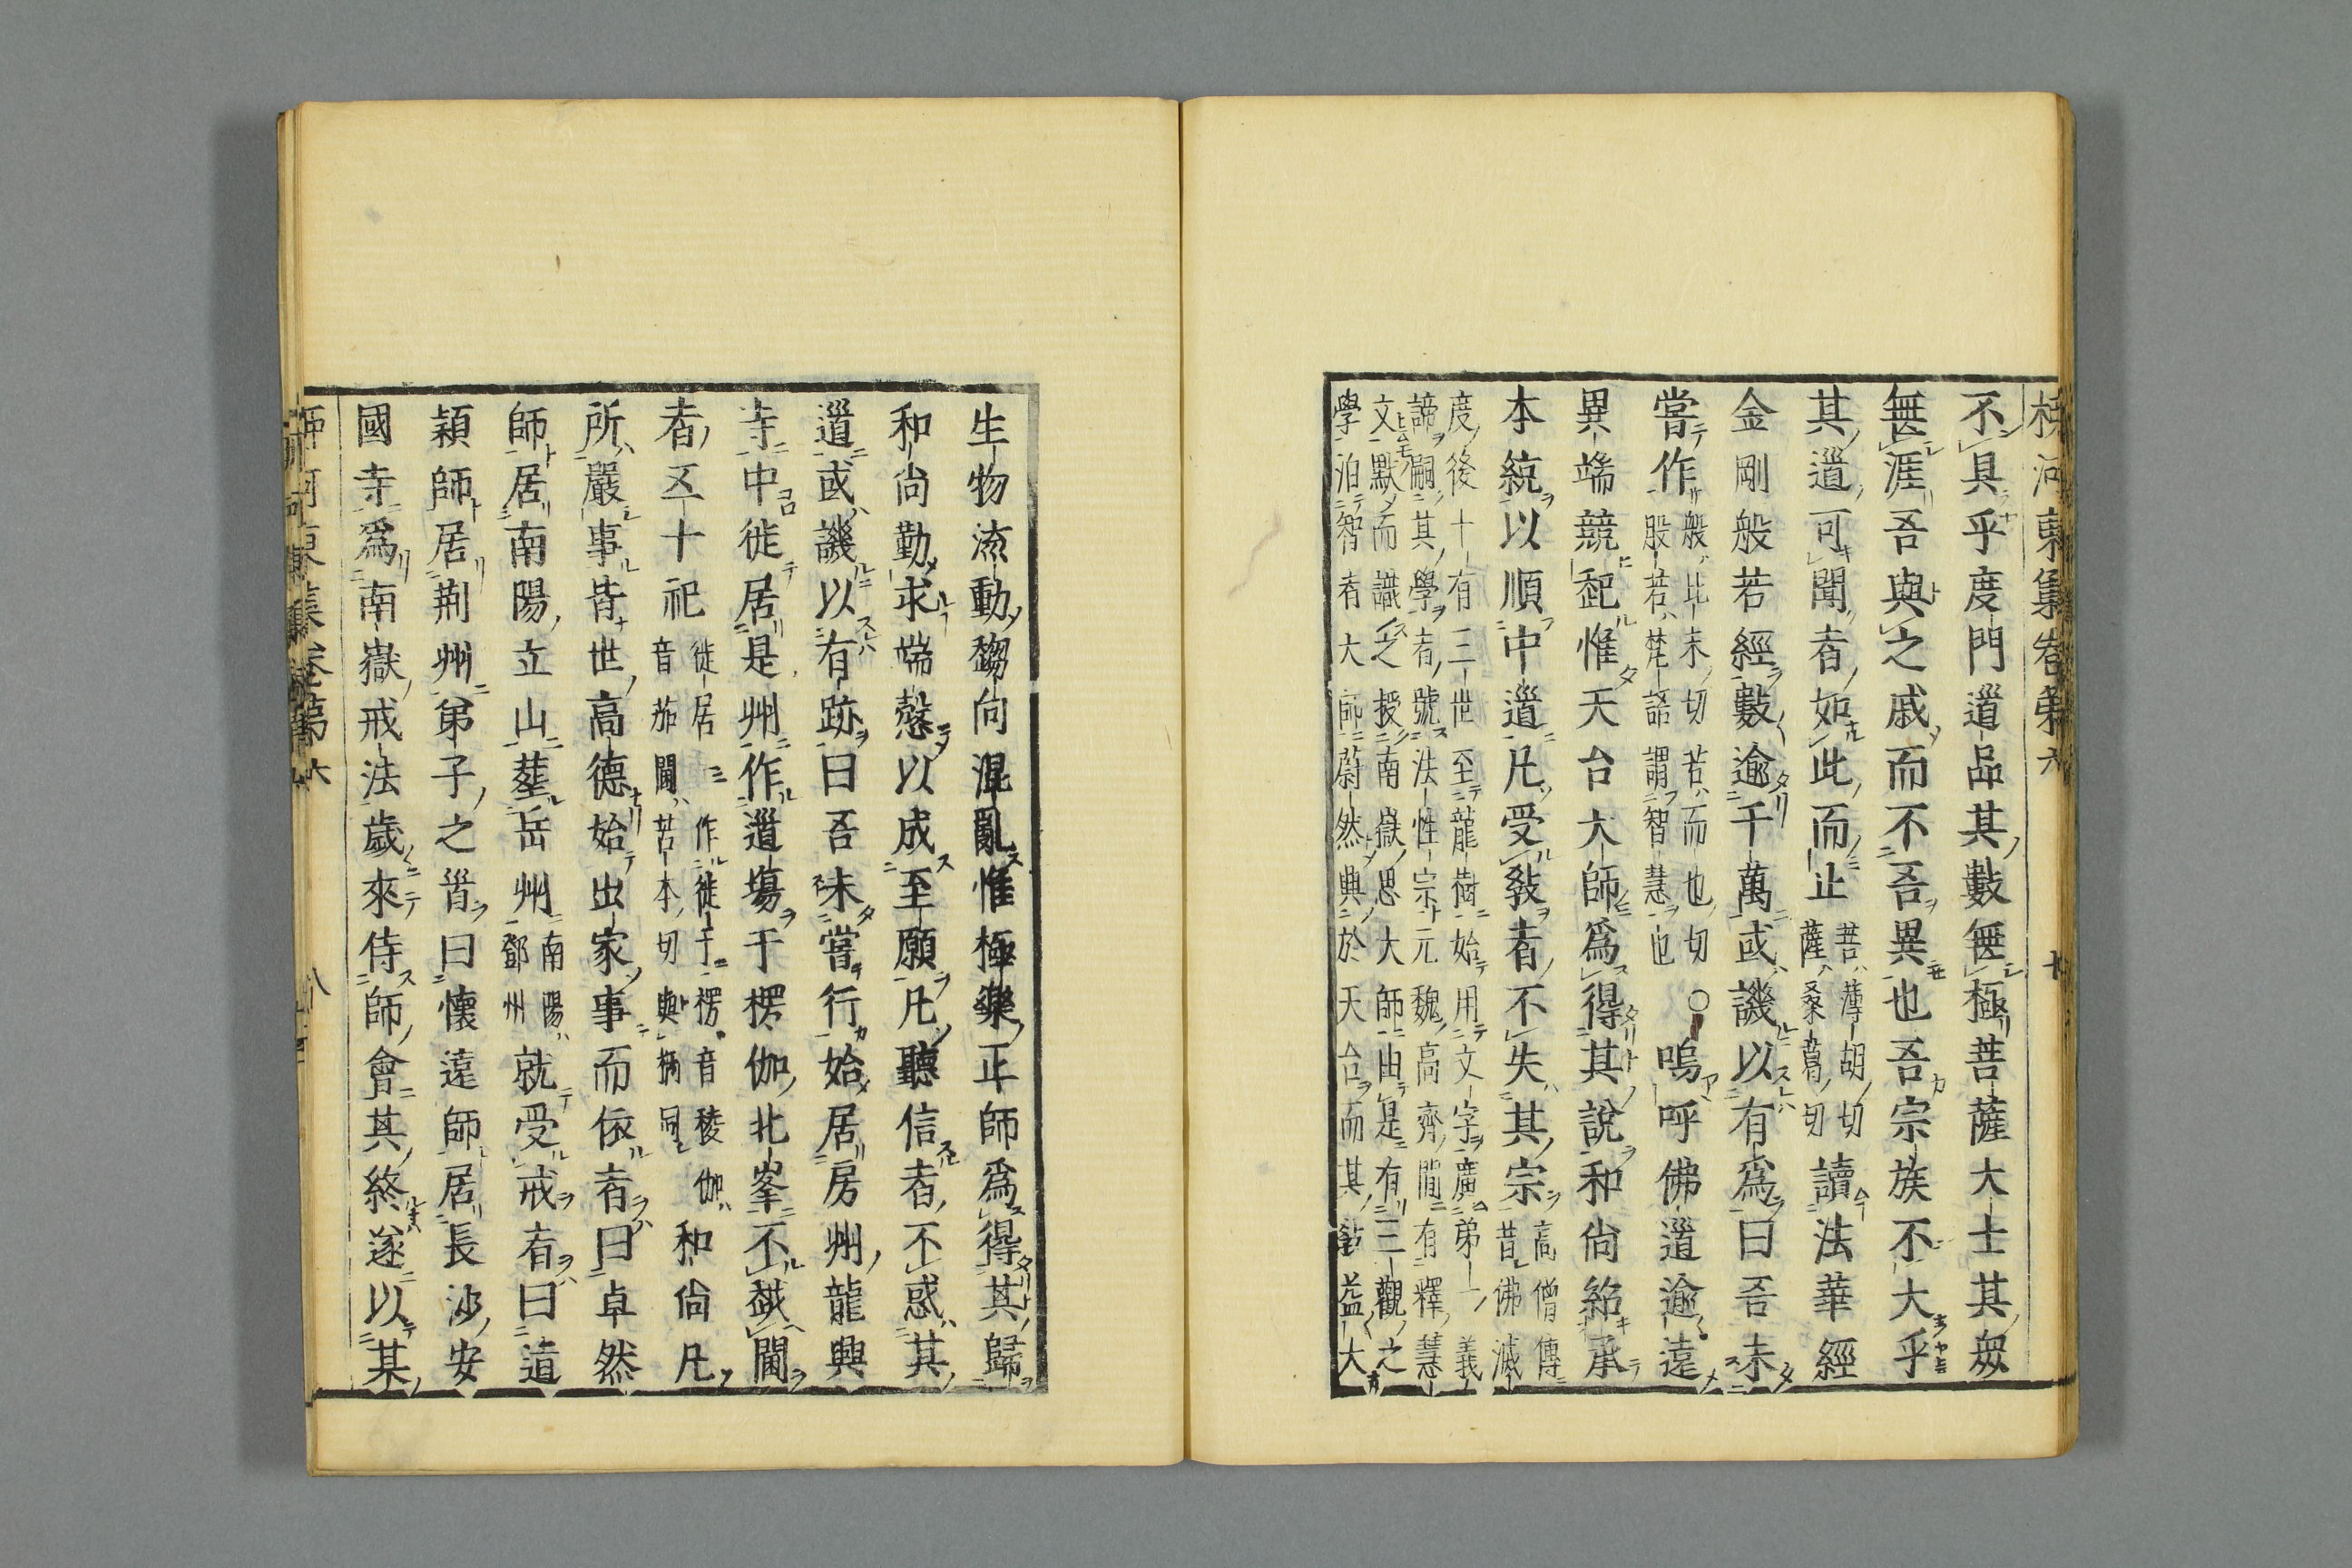 柳河東集卷第六
不具乎度門道品其數無極菩薩大士其衆
無涯吾與之戚而不吾異也吾宗族不大乎
其道可聞者如此而止菩薄胡切薩桑葛切讀法華經
金剛般若經數逾千萬或譏以有爲曰吾未
嘗作般比末切若而也切般若梵語謂智慧也○嗚呼佛道逾遠
異端競起惟天台大師爲得其說和尚紹承
本統以順中道凡受教者不失其宗高僧傳昔佛滅
度後十有三世至龍樹始用文字廣第一義
諦嗣其學者號法性宗元魏高齊間有釋慧
文默而識之授南嶽思大師由是有三觀之
學洎智者大師蔚然興於天台而其教益大
生物流動趨向混亂惟極樂正師爲得其歸
和尚勤求端慤以成至願凡聽信者不惑其
道或譏以有跡曰吾未嘗行始居房州龍興
寺中徙居是州作道塲于楞伽北峯不越閫
者五十祀徙居一作徙于楞音稜伽音茄閫苦本切與梱同和尚凡
所嚴事皆世高德始出家事而依者曰卓然
師居南陽立山葬岳州南陽鄧州就受戒者曰道
穎師居荆州弟子之首曰懷遠師居長沙安
國寺爲南嶽戒法歲來侍師會其終遂以某
柳河東集卷第六 八